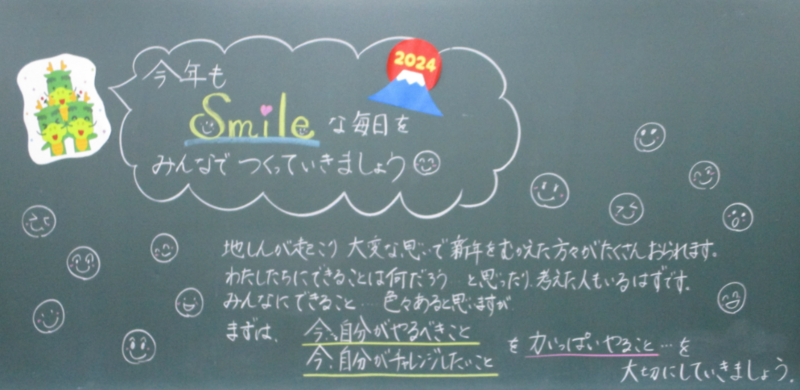 2024
今年も
Smile な毎日を
みんなで つくっていきましょう
地しんが起こり 大変な思いで新年をむかえた方々がたくさんおられます。
わたしたちにできることは何だろう…と思ったり、考えた人もいるはずです。
みんなにできること…色々あると思いますが
まずは、今、自分がやるべきこと
今、自分がチャレンジしたいこと
を 力いっぱいやること…を
大切にしていきましょう。